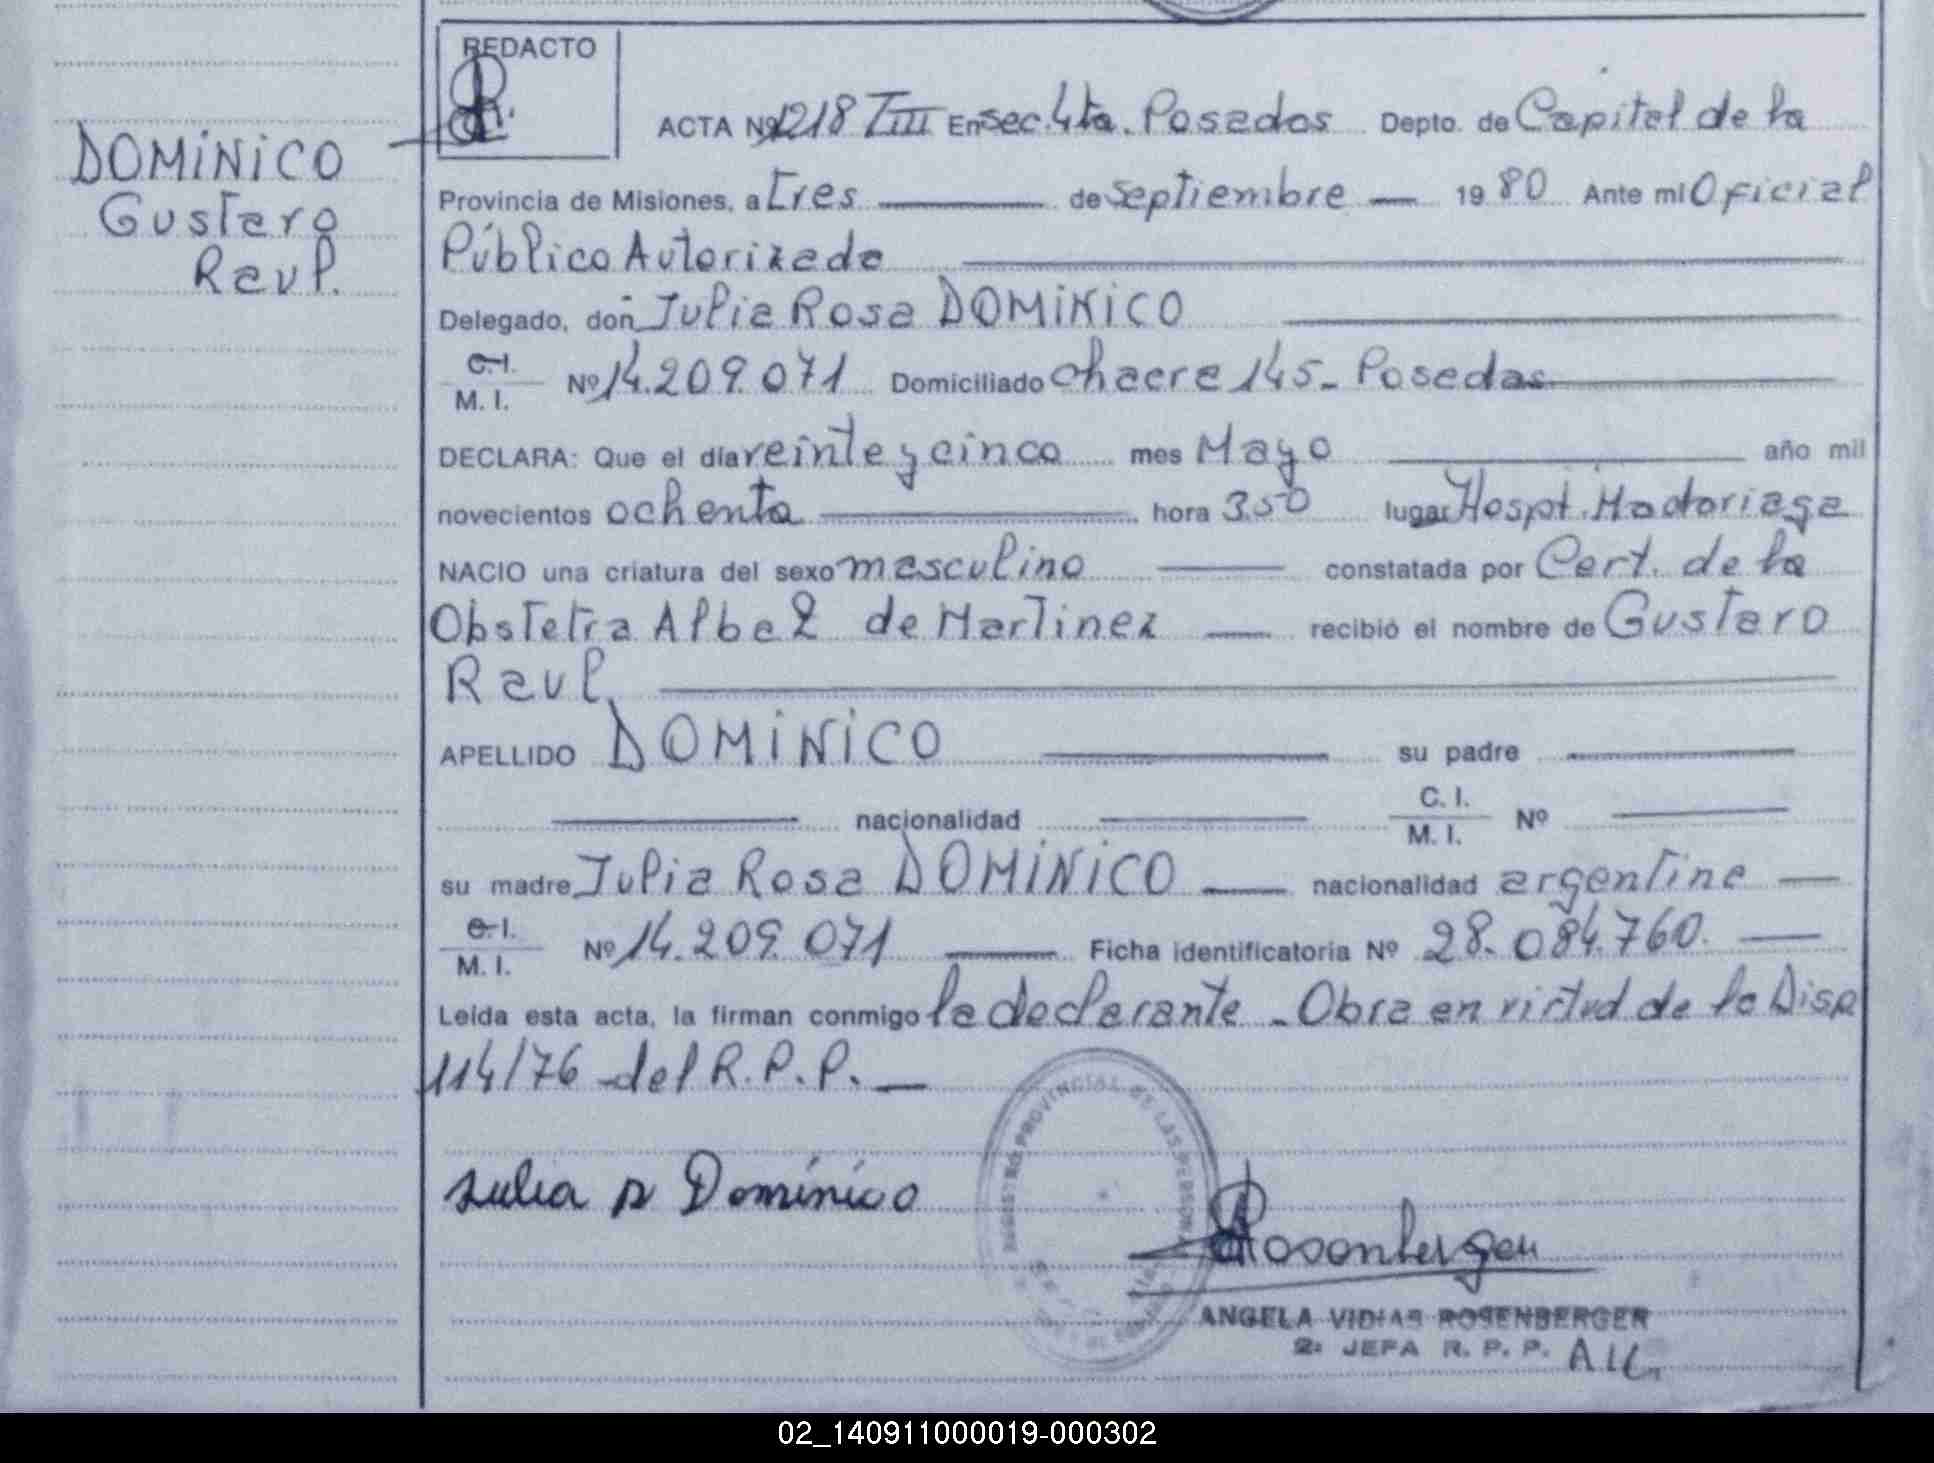 REDACTO
DOMINICO
Gustavo
Raul.
ACTA Nº 1218 TIII En sec. 4ta. Posadas Depto. de Capital de la
Provincia de Misiones, a tres de septiembre 1980 Ante mi Oficial
Público Autorizado
Delegado, doñ Julia Rosa DOMINICO
C.I.
M.I. Nº 14.209.071 Domiciliado chacra 145 - Posadas
DECLARA: Que el día veinte y cinco mes Mayo año mil
novecientos ochenta hora 3.50 lugar Hospt. Madariaga
NACIO una criatura del sexo masculino constatada por Cert. de la
Obstetra Alba Z de Martinez recibió el nombre de Gustavo
Raul
APELLIDO DOMINICO su padre
nacionalidad C.I.
M.I. Nº
su madre Julia Rosa DOMINICO nacionalidad argentina
C.I.
M.I. Nº 14.209.071 Ficha identificatoria Nº 28.084.760.
Leída esta acta, la firman conmigo la declarante - Obra en virtud de la Disp
114/76 del R.P.P.
Julia R Dominico
PROVINCIAL DE LAS PERSONAS
Rosenberger
ANGELA VIDIAS ROSENBERGER
2: JEFA R. P. P.
02_140911000019-000302